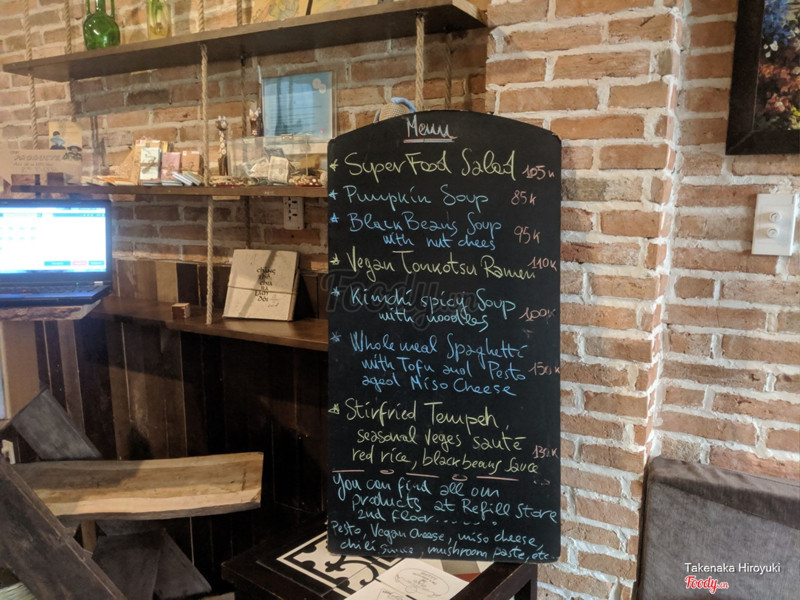 Menu
SuperFood Salad 105k
Pumpkin Soup 85k
Black Beans Soup 95k
with nut chees
Vegan Tonkotsu Ramen 110k
Kimchi spicy Soup
with noodles 100k
Whole meal Spaghetti
with Tofu and Pesto 150k
aged Miso Cheese
Stirfried Tempeh,
seasonal veges sauté
red rice, blackbeans sauce
You can find all our
products at Refill Store
2nd floor......
Pesto, Vegan cheese, miso cheese,
mushroom paste, etc
Foody.vn
Takenaka Hiroyuki
Foody.vn